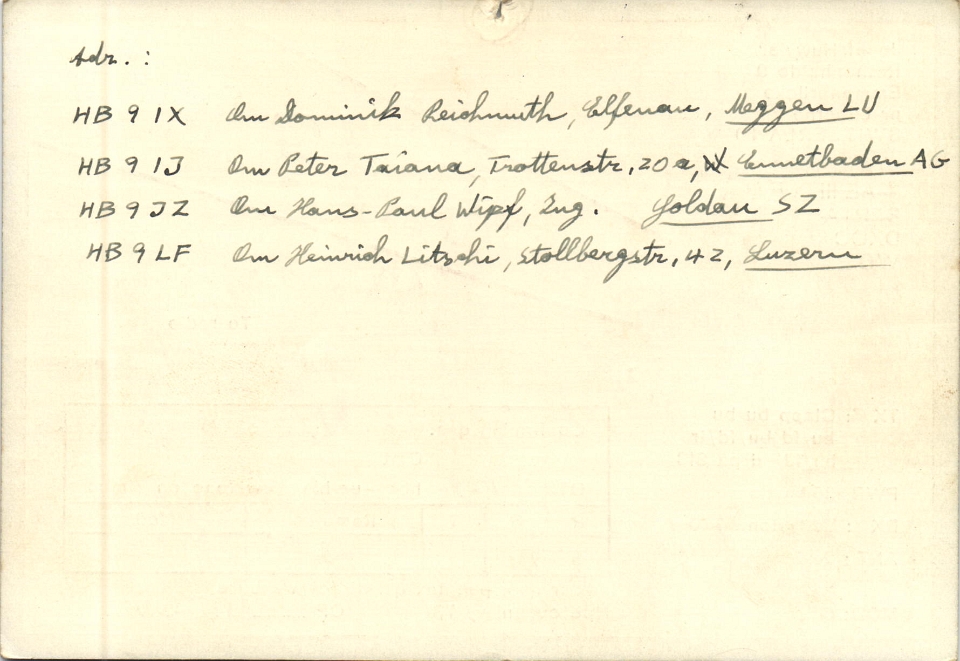 Adr. :
HB 9 IX Om Dominik Reichmuth, Elfenau, Meggen LU
HB 9 IJ Om Peter Taiana, Trottenstr. 20a, Ennetbaden AG
HB 9 JZ Om Hans-Paul Wipf, Ing. Goldau SZ
HB 9 LF Om Heinrich Litschi, Stollbergstr. 42, Luzern